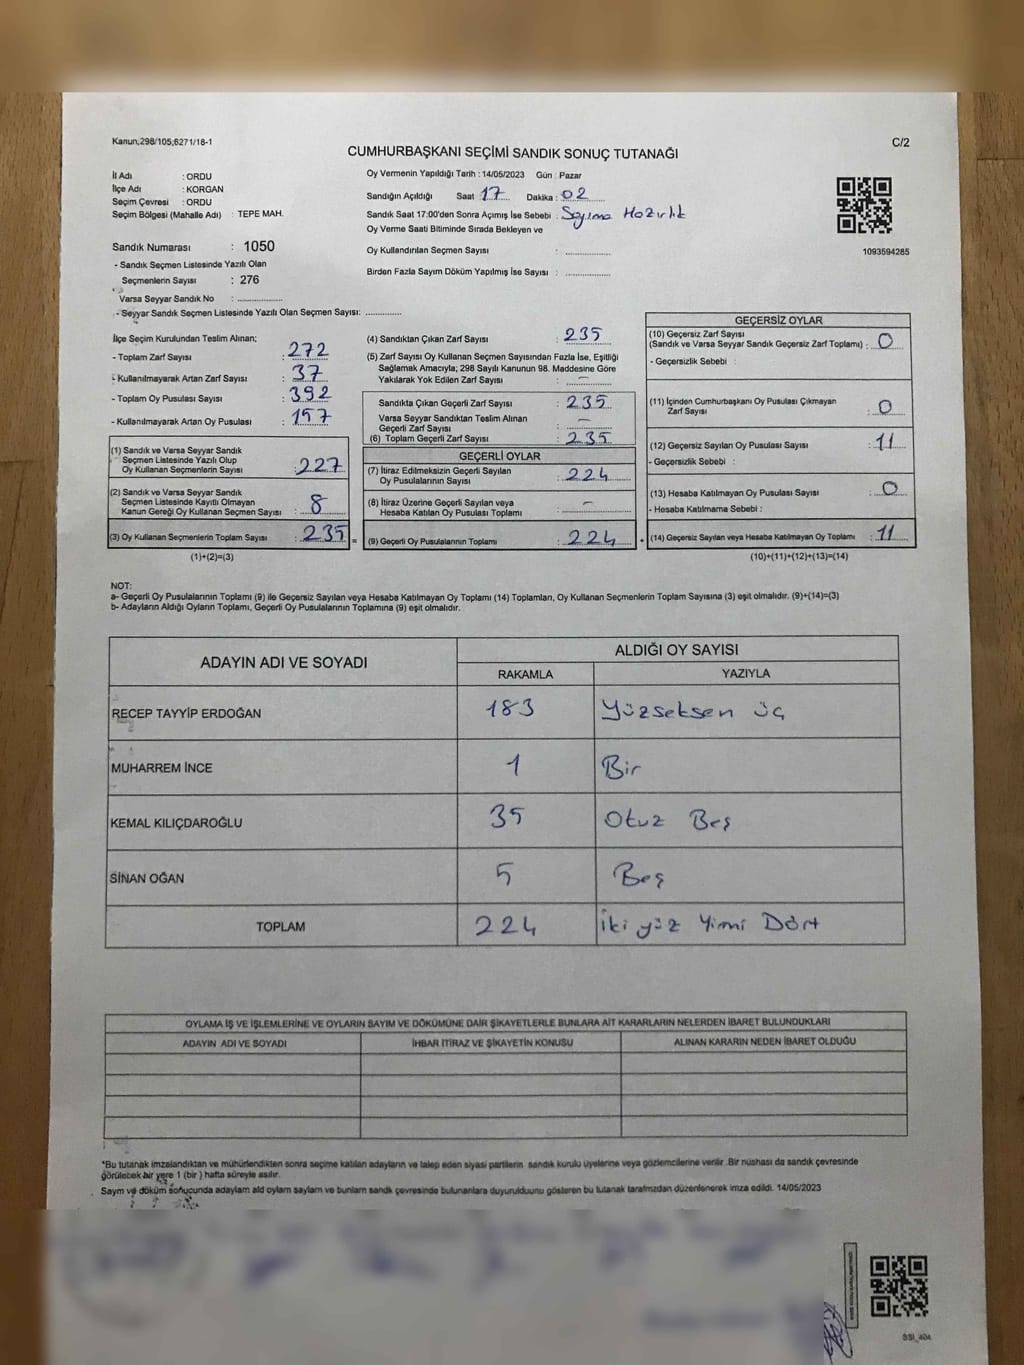 Kanun,298/105;6271/18-1
C/2
CUMHURBAŞKANI SEÇİMİ SANDIK SONUÇ TUTANAĞI
İl Adı : ORDU
İlçe Adı : KORGAN
Seçim Çevresi : ORDU
Seçim Bölgesi (Mahalle Adı) : TEPE MAH.
Sandık Numarası : 1050
- Sandık Seçmen Listesinde Yazılı Olan
Seçmenlerin Sayısı : 276
Varsa Seyyar Sandık No : ..............
- Seyyar Sandık Seçmen Listesinde Yazılı Olan Seçmen Sayısı: ............
Oy Vermenin Yapıldığı Tarih : 14/05/2023 Gün : Pazar
Sandığın Açıldığı Saat 17 Dakika : 02
Sandık Saat 17:00'den Sonra Açımış İse Sebebi : Sayıma Hazırlık
Oy Verme Saati Bitiminde Sırada Bekleyen ve
Oy Kullandırılan Seçmen Sayısı : ..............
Birden Fazla Sayım Döküm Yapılmış İse Sayısı : ..............
1093594285
İlçe Seçim Kurulundan Teslim Alınan;
- Toplam Zarf Sayısı : 272
- Kullanılmayarak Artan Zarf Sayısı : 37
- Toplam Oy Pusulası Sayısı : 392
- Kullanılmayarak Artan Oy Pusulası : 157
(1) Sandık ve Varsa Seyyar Sandık
Seçmen Listesinde Yazılı Olup
Oy Kullanan Seçmenlerin Sayısı : 227
(2) Sandık ve Varsa Seyyar Sandık
Seçmen Listesinde Kayıtlı Olmayan
Kanun Gereği Oy Kullanan Seçmen Sayısı : 8
(3) Oy Kullanan Seçmenlerin Toplam Sayısı : 235
(1)+(2)=(3)
(4) Sandıktan Çıkan Zarf Sayısı : 235
(5) Zarf Sayısı Oy Kullanan Seçmen Sayısından Fazla İse, Eşitliği
Sağlamak Amacıyla; 298 Sayılı Kanunun 98. Maddesine Göre
Yakılarak Yok Edilen Zarf Sayısı : –
Sandıkta Çıkan Geçerli Zarf Sayısı : 235
Varsa Seyyar Sandıktan Teslim Alınan
Geçerli Zarf Sayısı : –
(6) Toplam Geçerli Zarf Sayısı : 235
GEÇERLİ OYLAR
(7) İtiraz Edilmeksizin Geçerli Sayılan
Oy Pusulalarının Sayısı : 224
(8) İtiraz Üzerine Geçerli Sayılan veya
Hesaba Katılan Oy Pusulası Toplamı : –
= (9) Geçerli Oy Pusulalarının Toplamı : 224 +
GEÇERSİZ OYLAR
(10) Geçersiz Zarf Sayısı
(Sandık ve Varsa Seyyar Sandık Geçersiz Zarf Toplamı) : 0
- Geçersizlik Sebebi :
(11) İçinden Cumhurbaşkanı Oy Pusulası Çıkmayan
Zarf Sayısı : 0
(12) Geçersiz Sayılan Oy Pusulası Sayısı : 11
- Geçersizlik Sebebi :
(13) Hesaba Katılmayan Oy Pusulası Sayısı : 0
- Hesaba Katılmama Sebebi :
(14) Geçersiz Sayılan veya Hesaba Katılmayan Oy Toplamı : 11
(10)+(11)+(12)+(13)=(14)
NOT:
a- Geçerli Oy Pusulalarının Toplamı (9) ile Geçersiz Sayılan veya Hesaba Katılmayan Oy Toplamı (14) Toplamları, Oy Kullanan Seçmenlerin Toplam Sayısına (3) eşit olmalıdır. (9)+(14)=(3)
b- Adayların Aldığı Oyların Toplamı, Geçerli Oy Pusulalarının Toplamına (9) eşit olmalıdır.
ADAYIN ADI VE SOYADI
ALDIĞI OY SAYISI
RAKAMLA YAZIYLA
RECEP TAYYİP ERDOĞAN 183 Yüzseksen üç
MUHARREM İNCE 1 Bir
KEMAL KILIÇDAROĞLU 35 Otuz Beş
SİNAN OĞAN 5 Beş
TOPLAM 224 İki yüz Yirmi Dört
OYLAMA İŞ VE İŞLEMLERİNE VE OYLARIN SAYIM VE DÖKÜMÜNE DAİR ŞİKAYETLERLE BUNLARA AİT KARARLARIN NELERDEN İBARET BULUNDUKLARI
ADAYIN ADI VE SOYADI İHBAR İTİRAZ VE ŞİKAYETİN KONUSU ALINAN KARARIN NEDEN İBARET OLDUĞU
*Bu tutanak imzalandıktan ve mühürlendikten sonra seçime katılan adayların ve talep eden siyasi partilerin sandık kurulu üyelerine veya gözlemcilerine verilir .Bir nüshası da sandık çevresinde
görülecek bir yere 1 (bir ) hafta süreyle asılır.
Saym ve döküm sonucunda adaylarn ald oylarn saylarn ve bunlarn sandk çevresinde bulunanlara duyurulduunu gösteren bu tutanak tarafmzdan düzenlenerek imza edildi. 14/05/2023